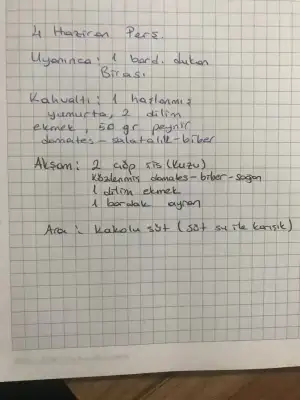 4 Haziran Perş.
Uyanınca: 1 bard. dukan
Birası.
Kahvaltı: 1 haşlanmış
yumurta, 2 dilim
ekmek, 50 gr peynir
domates - salatalık - biber
Akşam: 2 çöp şiş (kuzu)
közlenmiş domates - biber - soğan
1 dilim ekmek
1 bardak ayran
Ara: kakaolu süt (süt su ile karışık)